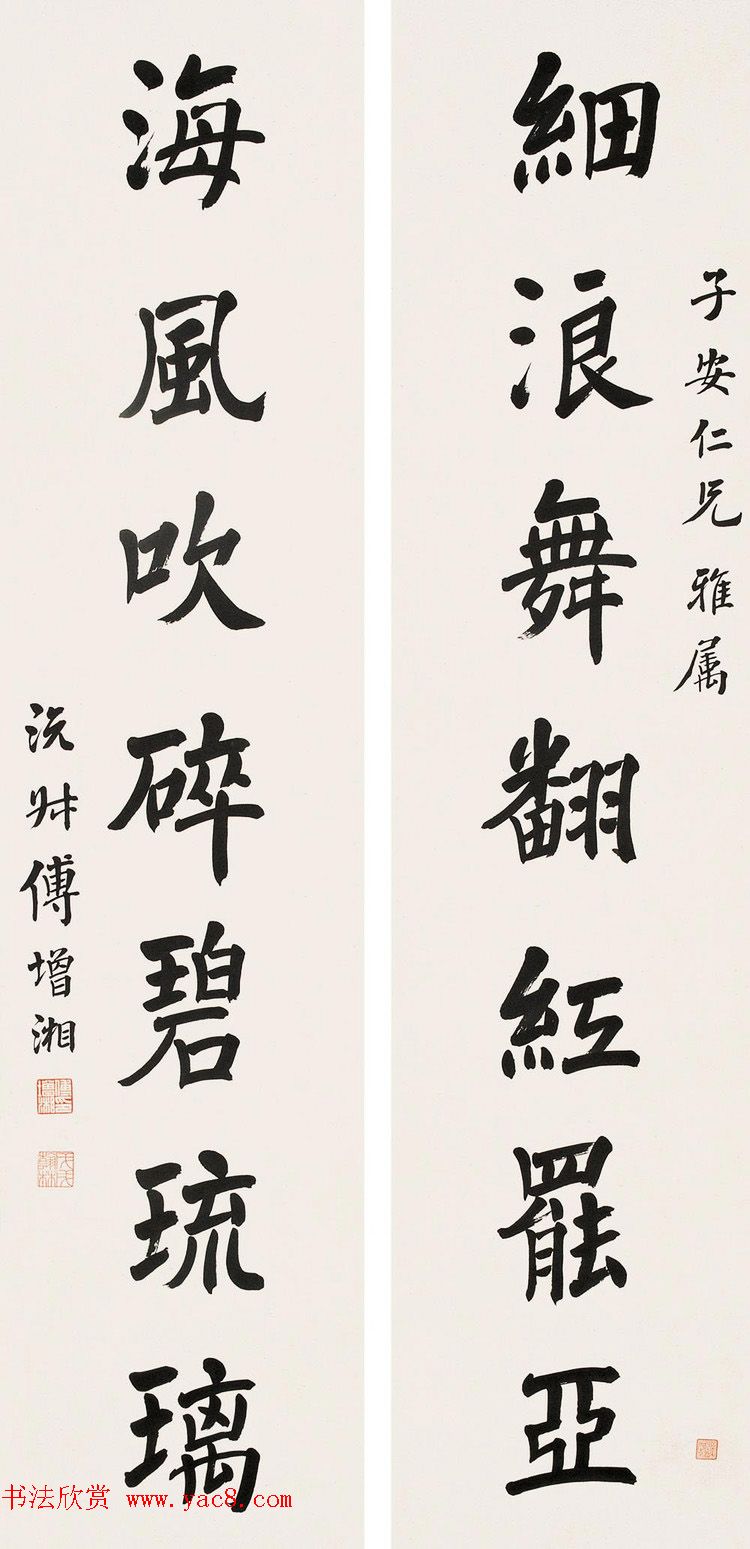 子安仁兄雅属
細浪舞翻紅罷亞
海風吹碎碧琉璃
沅叔傅增湘
戊戌翰林
书法欣赏 www.yac8.com